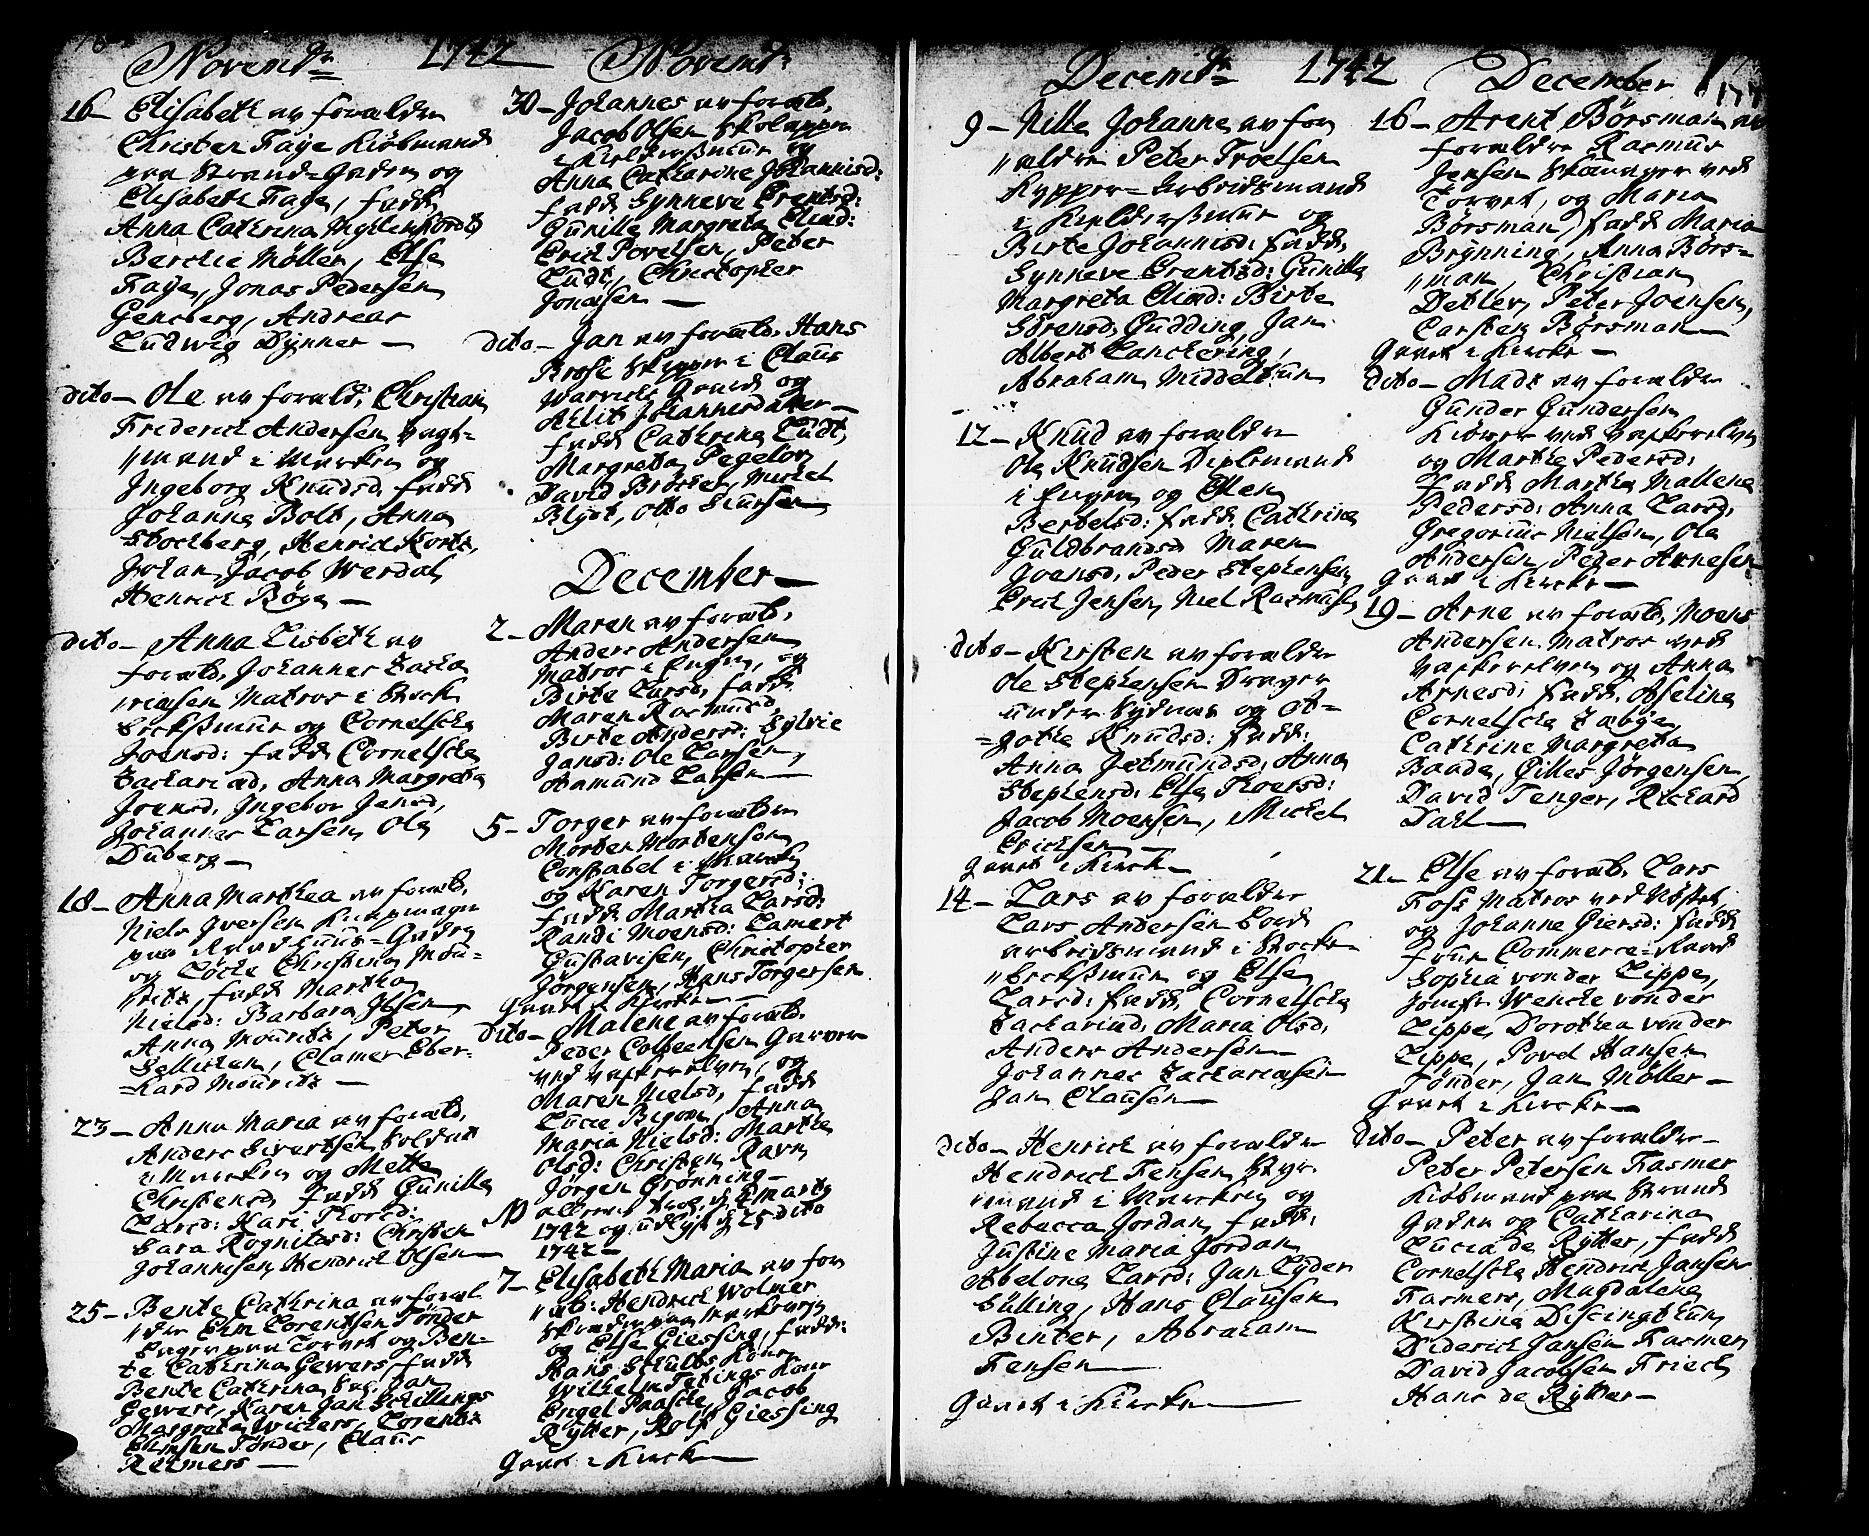 Novemb: 1742 Novemb:
16 – Elisabeth av forældre
Christen Faye Kiöbmand
paa Strand-Gaden og
Elisabeth Faye, fadd:
Anna Cathrina
Berthe Möller, Else
Faye, Jonas Pedersen
Gensberg, Andreas
Ludwig Dynner –
dito – Ole av foræld: Christian
Friderich Andersen Vagt-
mand i Marken og
Ingeborg Knudsd. fadd
Johanna Bolt, Anna
Stockberg, Henrich Korts,
Johan Jacob Werdal,
Henrich Böye –
dito – Anna Lisbeth av
foræld. Johannes Zacha
riasen Matros i Stock
og Cornelscha
Joensd: fadd Cornelscha
Zachariasd, Anna Margreta
Joensd, Ingebor Jensd,
Johannes Larsen, Ole
Duberg –
18 – Anna Marthea av foræld.
Niels Iversen
paa Raadhuus-Gaden
og Christina Mou-
ritz, fadd Martha
Nielsd: Barbara Ibsen,
Anna Mouritz, Peter
Clamer Eber-
hard Mouritz –
23 – Anna Maria av foræld.
Anders Sivertsen Soldat
i Marken og Mette
Christensd, fadd Gunilla
Larsd: Kari
Sara Rognildsd: Christen
Johannesen, Hendrich Olsen –
25 – Bente Cathrina av foræl
dre Elm Lorentsen Tönder
paa Torvet og Ben-
te Cathrina Gewers, fadd
Bente Cathrina Jan
Gewers, Karen Jan Schillings
Margreta Wichers, Lorents
Elmsen Tönder, Claus
Reimers –
30 – Johannes av foræld.
Jacob Olsen
i og
Anna Catharine Johannisd:
fadd. Synneve Erentsd:
Gunilla Margreta Eliasd:
Erich Povelsen, Peter
Ludt, Christopher
Jonasen –
dito – Jan av foræld. Hans
Brose Skipper i Claus
og
Ahlit Johannesdatter –
fadd Cathrina Ludt,
Margreta Pegelov
David Bröcker, Michel
Blydt, Otto
December –
2 – Maren av foræld,
Anders Andersen
Matros i Engen, og
Birte Larsd, fadd.
Maren Rasmusd,
Birte Andersd: Sylvie
Jansd: Ole Larsen,
Aamund Larsen –
5 – Torger av forældre
Morten Mortensen
Constabel i Marken
og Karen Torgersd:
fadd Martha Larsd:
Randi Moensd: Lamert
Gustavisen, Christopher
Jörgensen, Hans Torgersen
Giort i Kircke –
dito – Malene av foræld.
Peder Garver
ved og
Maren Nielsd, fadd
Lucie Anna
Maria Nielsd: Martha
Olsd: Christen Ravn
Jörgen Grönning –
1742 og dito
1742 –
7 – Elisabeth Maria av for
æld: Hendrich Wolmer
og Else Giessing, fadd:
Hans Schults Kone
Wilhelm Kone
Engel Paasche, Jacob
Rytter, Rolf Giessing
Giort i Kircke –
Decemb: 1742 December 177
9 – Nille Johanne av for
ældre Peter Troelsen
Kypper-Arbeidsmand
i og
Birte Johannisd: fadd,
Synneve Erentsd: Gunilla
Margreta Eliasd: Birte
Sörensd, Gudding, Jan
Albert Lanckering,
Abraham Middeltun
12 – Knud av forældre
Ole Knudsen
i Engen og Ellen
Bertelsd: fadd, Cathrina
Guldbrandsd Maren
Joensd, Peder Stephensen,
Erich Jensen, Niel Rasmuss
dito – Kirsten av forældre
Ole Stephensen Drager
under Sydnæs og A-
gothe Knudsd: fadd:
Anna Jetmundsd, Anna
Stephensd: Else
Jacob Moensen, Michel
Ericksen –
Giort i Kirck –
14 – Lars av forældre
Lars Andersen
arbeidsmand i Stocke
og Else
Larsd: fadd, Cornelscha
Zachariasd, Maria Olsd,
Anders Andersen –
Johannes Zachariasen
Jan Clausen –
dito – Henrich av forældre
Hendrich Fensen Styr
mand i Marcken og
Rebecca Jordan, fadd:
Justine Maria Jordan
Abelone Larsd: Jan Lyder
Sülling, Hans Clausen
Binter, Abraham
Fensen –
Giort i Kircke –
16 – Arent Börsman av
forældre Rasmus
Jensen ved
Torvet, og Maria
Börsman, fadd Maria
Brynning, Anna Börs-
man, Christian
Detlev, Peter Joensen,
Carsten Börsman –
Giort i Kircke –
dito – Mads av forældre
Gunder Gundersen
ved
og Marthe Pedersd:
fadd Martha Mallena
Pedersd: Anna Larsd,
Gregorius Nielsen, Ole
Andersen, Peder Arnesen
Giort i Kircke –
19 – Arne av foræld, Moens
Andersen Matros ved
og Anna
Arnesd: fadd, Aseline
Cornelscha
Cathrine Margreta
Baade, Gilles Jörgensen,
David Tenger, Richard
Dahl –
21 – Else av foræld. Lars
Foss Matros ved Nöstet
og Johanne Giersd: fadd
frue Commerce-Raad
Sophia vonder Lippe,
Jomfr Wenche vonder
Lippe, Dorothea vonder
Lippe, Povel Hansen
Tönder, Jan Möller –
Giort i Kircke –
dito – Peter av forældre –
Peter Petersen Fasmer
Kiöbmand paa Strand
Gaden og Catharina
Lucia de Rytter, fadd
Cornelscha Hendrich Jansen
Fasmers, Magdalena
Kirstina Discingthun,
Diderich Jansen Fasmer,
David Jacobsen Friech
Hans de Rytter –